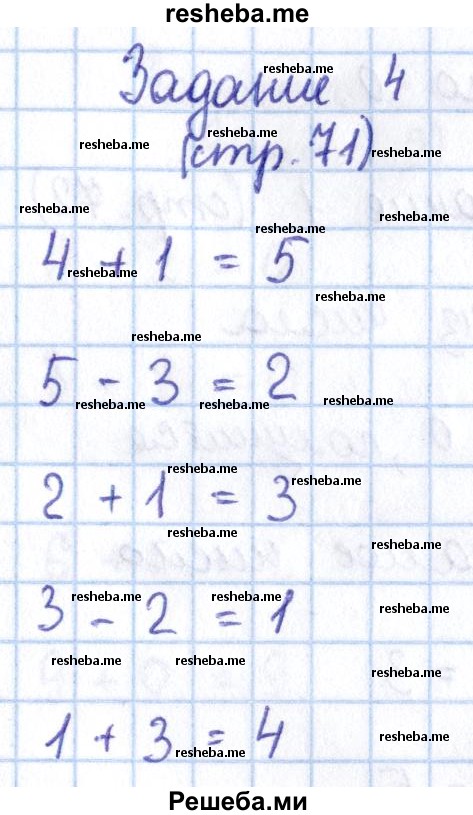 resheba.me
resheba.me
Задание 4
resheba.me resheba.me
(стр. 71) resheba.me
resheba.me
resheba.me
4 + 1 = 5
resheba.me
resheba.me
resheba.me
5 - 3 = 2
resheba.me resheba.me resheba.me
resheba.me resheba.me
2 + 1 = 3
resheba.me
resheba.me
resheba.me resheba.me resheba.me
3 - 2 = 1
resheba.me resheba.me
resheba.me
1 + 3 = 4 resheba.me
resheba.me
Решеба.ми